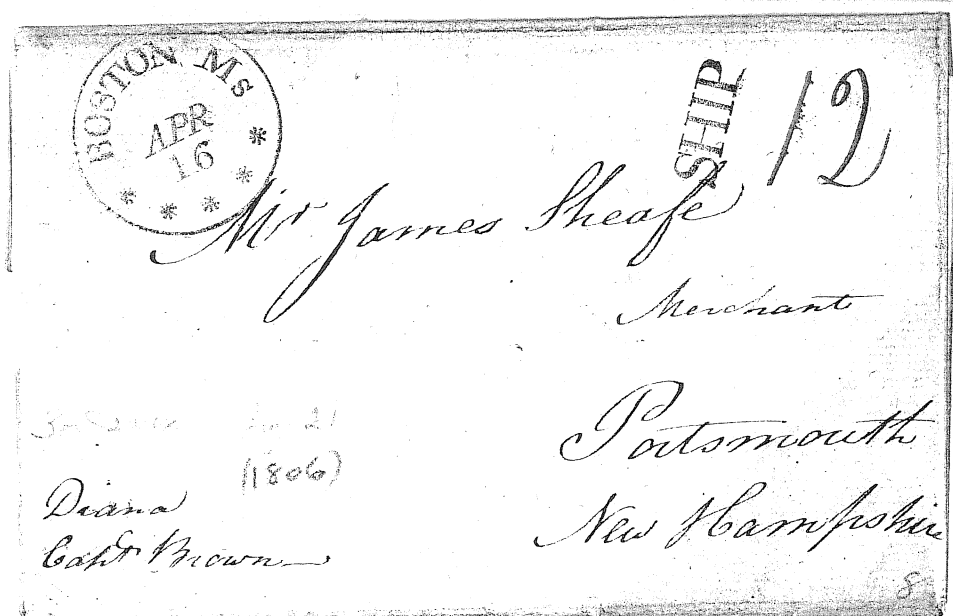 BOSTON Ms
APR
16
SHIP
12
Mr James Sheafe
Merchant
Portsmouth
New Hampshire
21
(1806)
Diana
Capt Brown
8